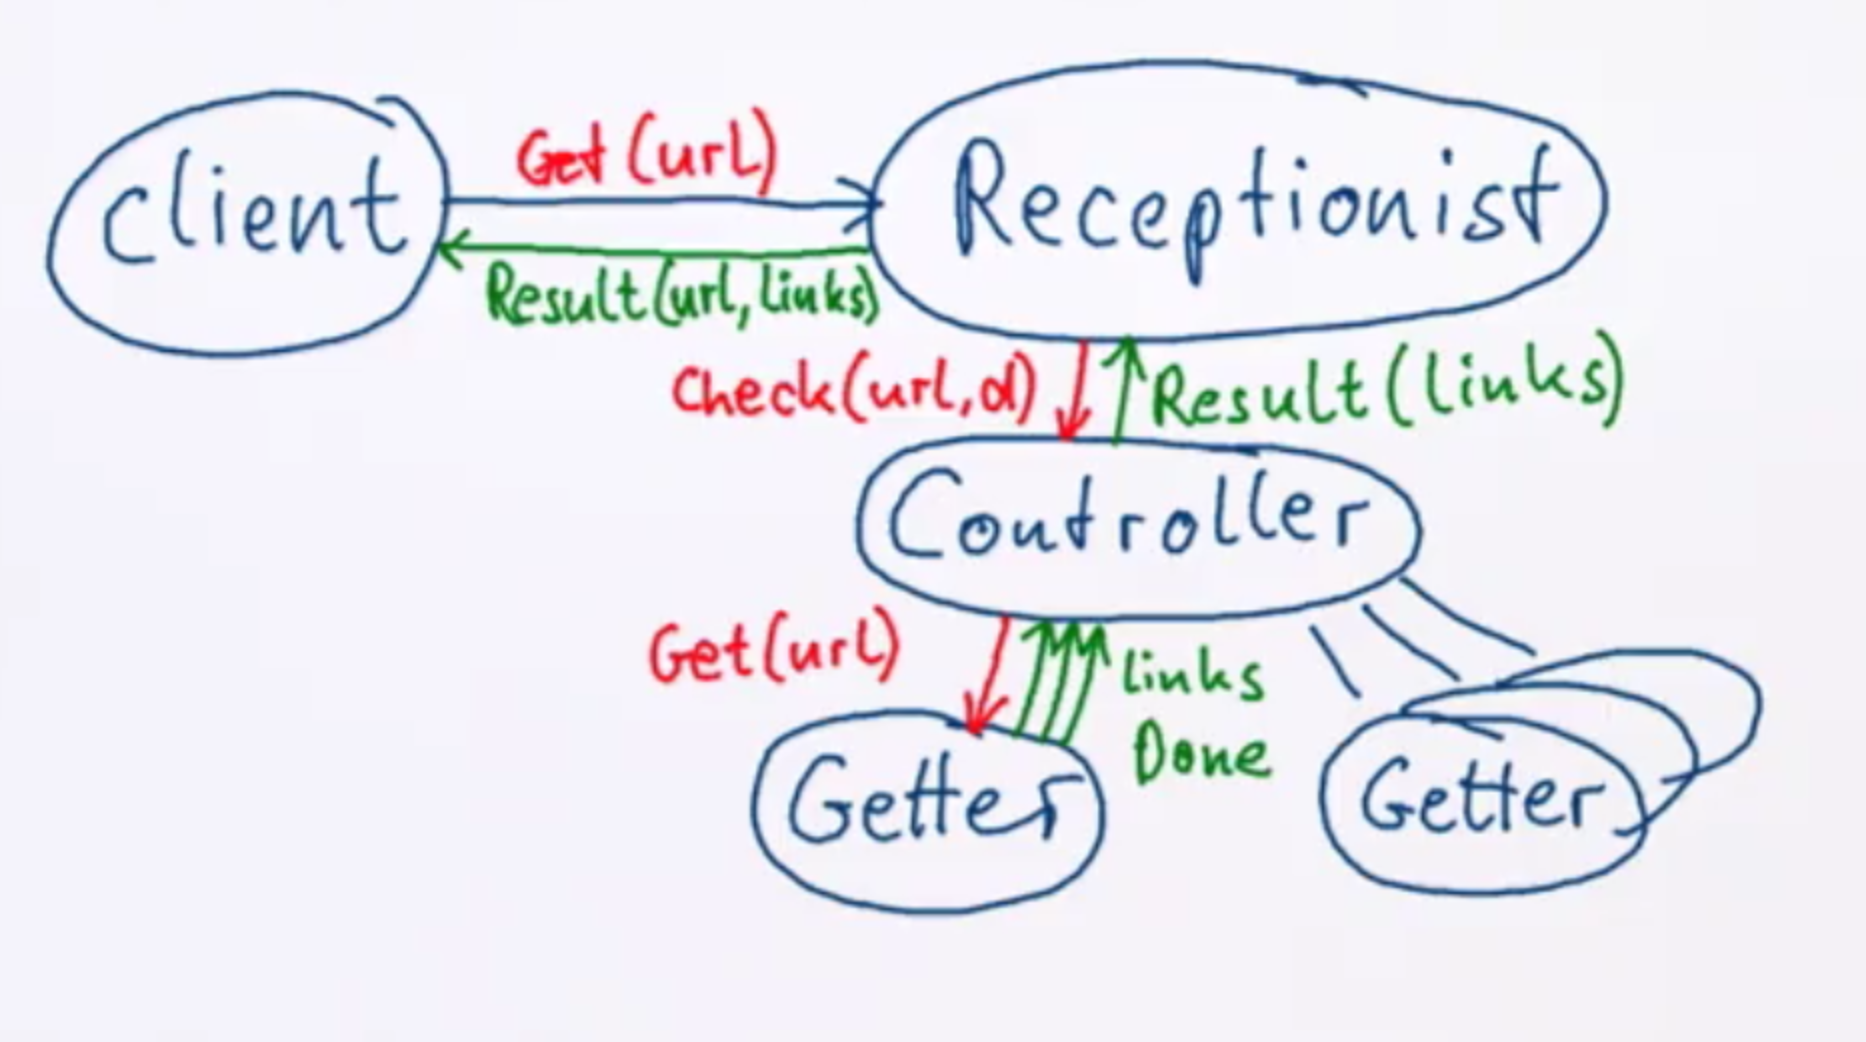 Get (url)
client
Receptionist
Result (url, links)
Check (url, d)
Result (links)
Controller
Get (url)
links
Done
Getter
Getter